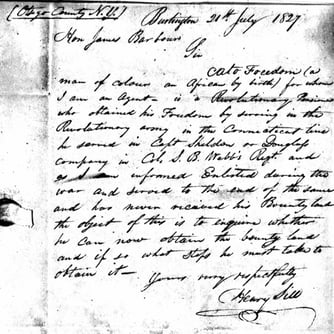 [Otsego County N.Y.]
Burlington 21st July 1827
Hon James Barbour
Sir
Cato Freedom (a
man of colour an African by birth) for whom
I am an Agent - is a Revolutionary Pensioner
who obtained his Freedom by serving in the
Revolutionary army in the Connecticut line
he served in Capt Sheldon or Douglass
company in Col. S. B. Webb's Regt. and
as I am informed Enlisted during the
war and served to the end of the same
and has never received his Bounty land
the object of this is to inquire whether
he can now obtain the bounty land
and if so what steps he must take to
obtain it -
Yours very respectfully
Henry Sill